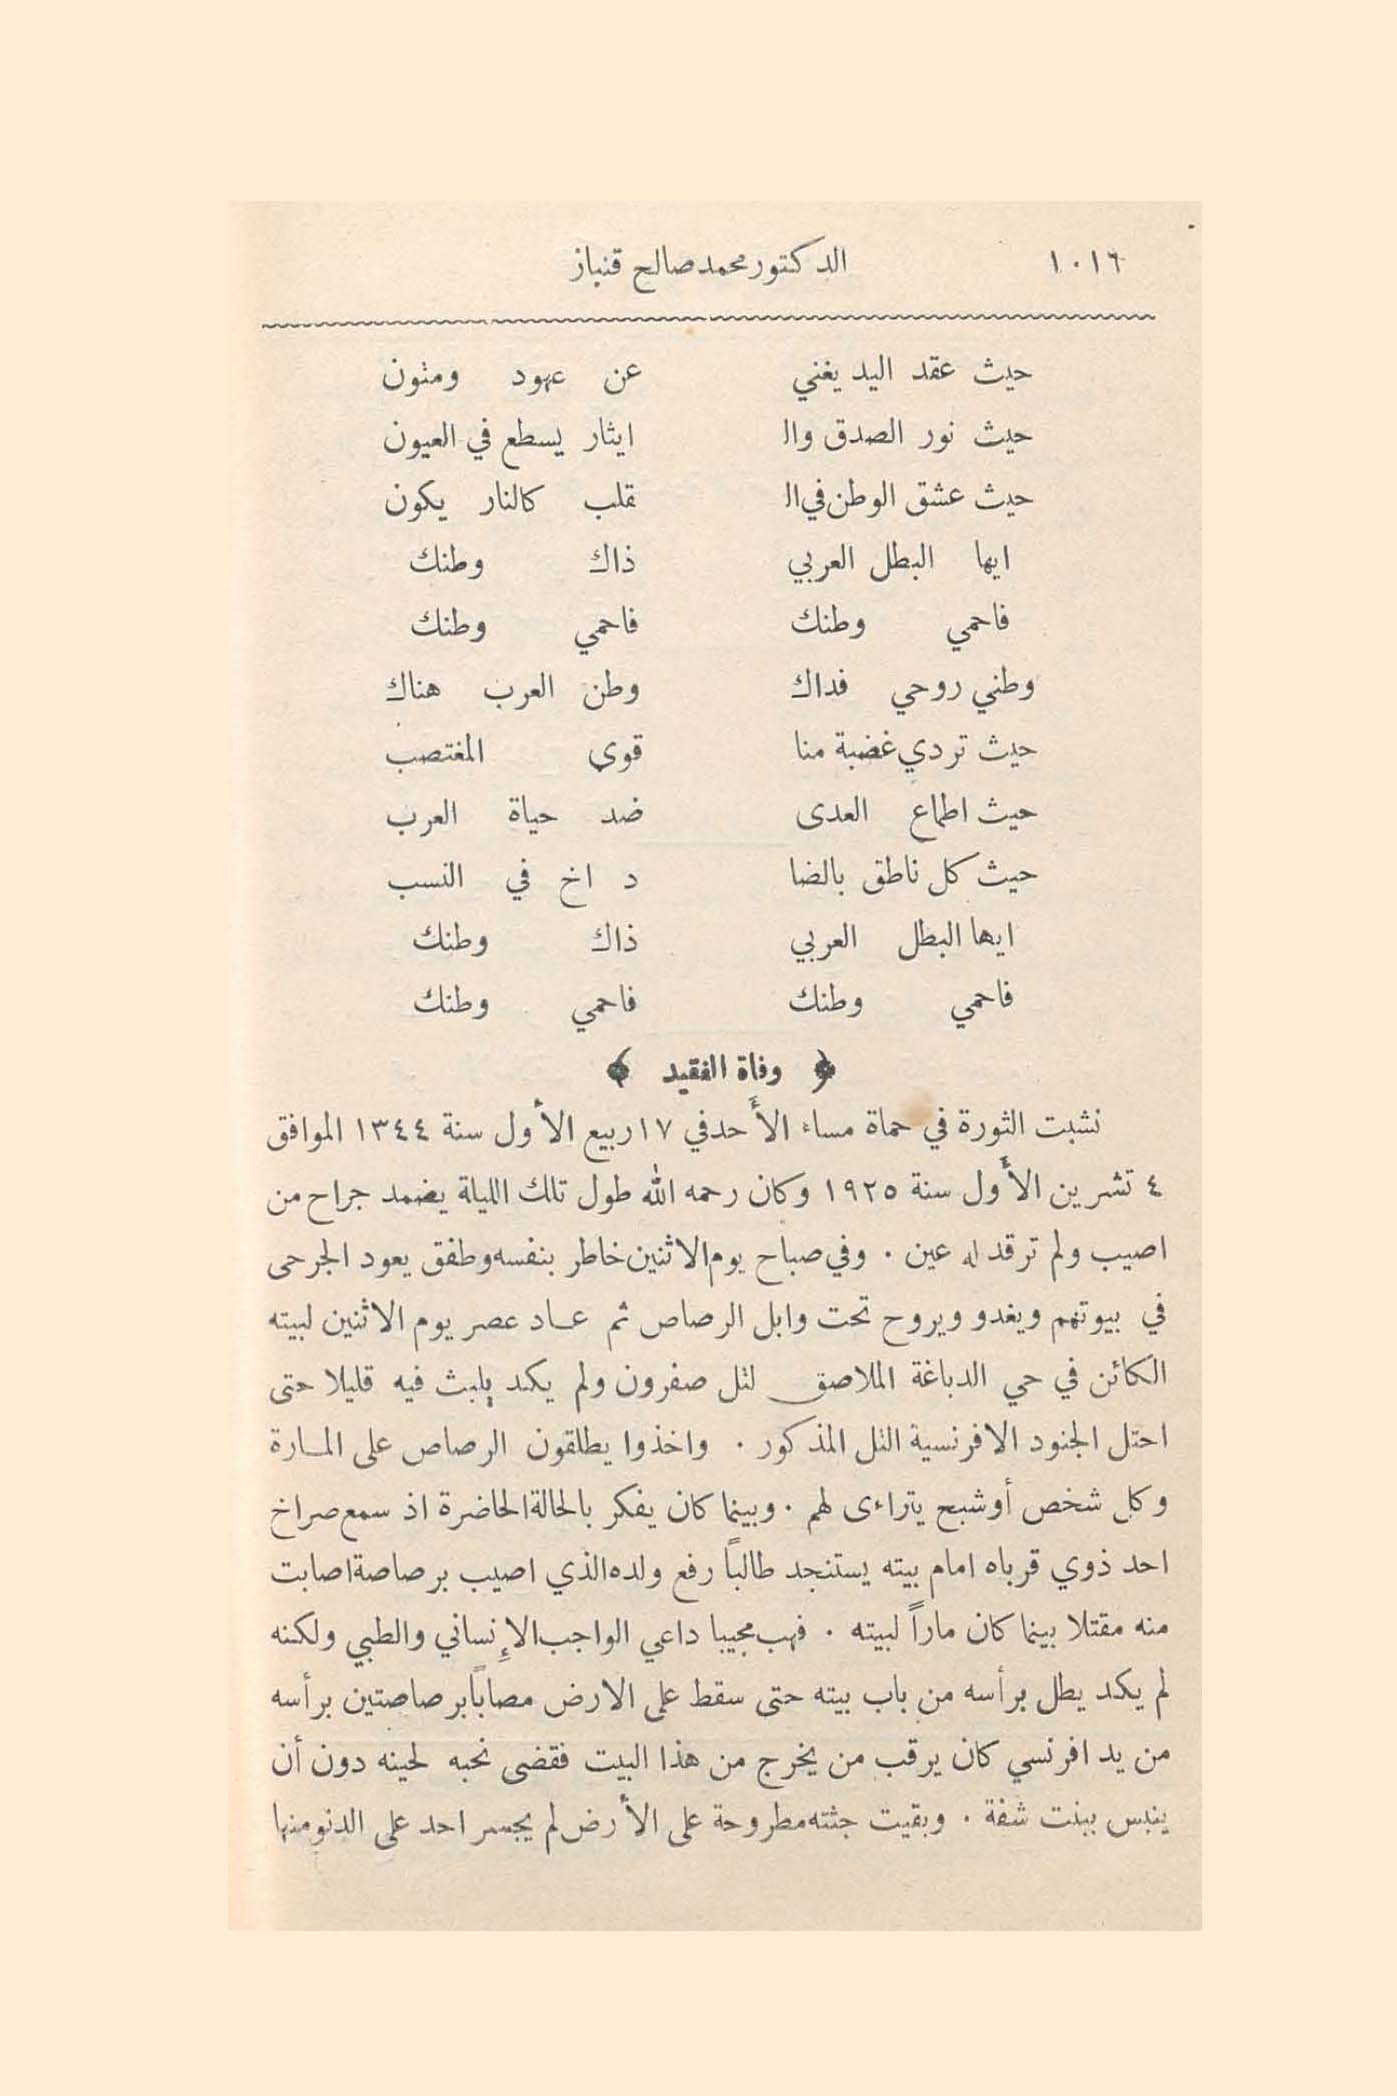 ١٠١٦ الدكتور محمد صالح قنباز
حيث عقد اليد يغني عن عهود ومتون
حيث نور الصدق وال ايثار يسطع في العيون
حيث عشق الوطن في ال قلب كالنار يكون
ايها البطل العربي ذاك وطنك
فاحمي وطنك فاحمي وطنك
وطني روحي فداك وطن العرب هناك
حيث تردي غضبة منا قوى المغتصب
حيث اطماع العدى ضد حياة العرب
حيث كل ناطق بالضا د اخ في النسب
ايها البطل العربي ذاك وطنك
فاحمي وطنك فاحمي وطنك
﴿ وفاة الفقيد ﴾
نشبت الثورة في حماة مساء الأحد في ١٧ ربيع الأول سنة ١٣٤٤ الموافق
٤ تشرين الأول سنة ١٩٢٥ وكان رحمه الله طول تلك الليلة يضمد جراح من
اصيب ولم ترقد له عين . وفي صباح يوم الاثنين خاطر بنفسه وطفق يعود الجرحى
في بيوتهم ويغدو ويروح تحت وابل الرصاص ثم عاد عصر يوم الاثنين لبيته
الكائن في حي الدباغة الملاصق لتل صفرون ولم يكد يلبث فيه قليلا حتى
احتل الجنود الافرنسية التل المذكور . واخذوا يطلقون الرصاص على المارة
وكل شخص أو شبح يتراءى لهم . وبينما كان يفكر بالحالة الحاضرة اذ سمع صراخ
احد ذوي قرباه امام بيته يستنجد طالباً رفع ولده الذي اصيب برصاصة اصابت
منه مقتلا بينما كان ماراً لبيته . فهب مجيبا داعي الواجب الإنساني والطبي ولكنه
لم يكد يطل برأسه من باب بيته حتى سقط على الارض مصاباً برصاصتين برأسه
من يد افرنسي كان يرقب من يخرج من هذا البيت فقضى نحبه لحينه دون أن
ينبس ببنت شفة . وبقيت جثته مطروحة على الأرض لم يجسر احد على الدنو منها